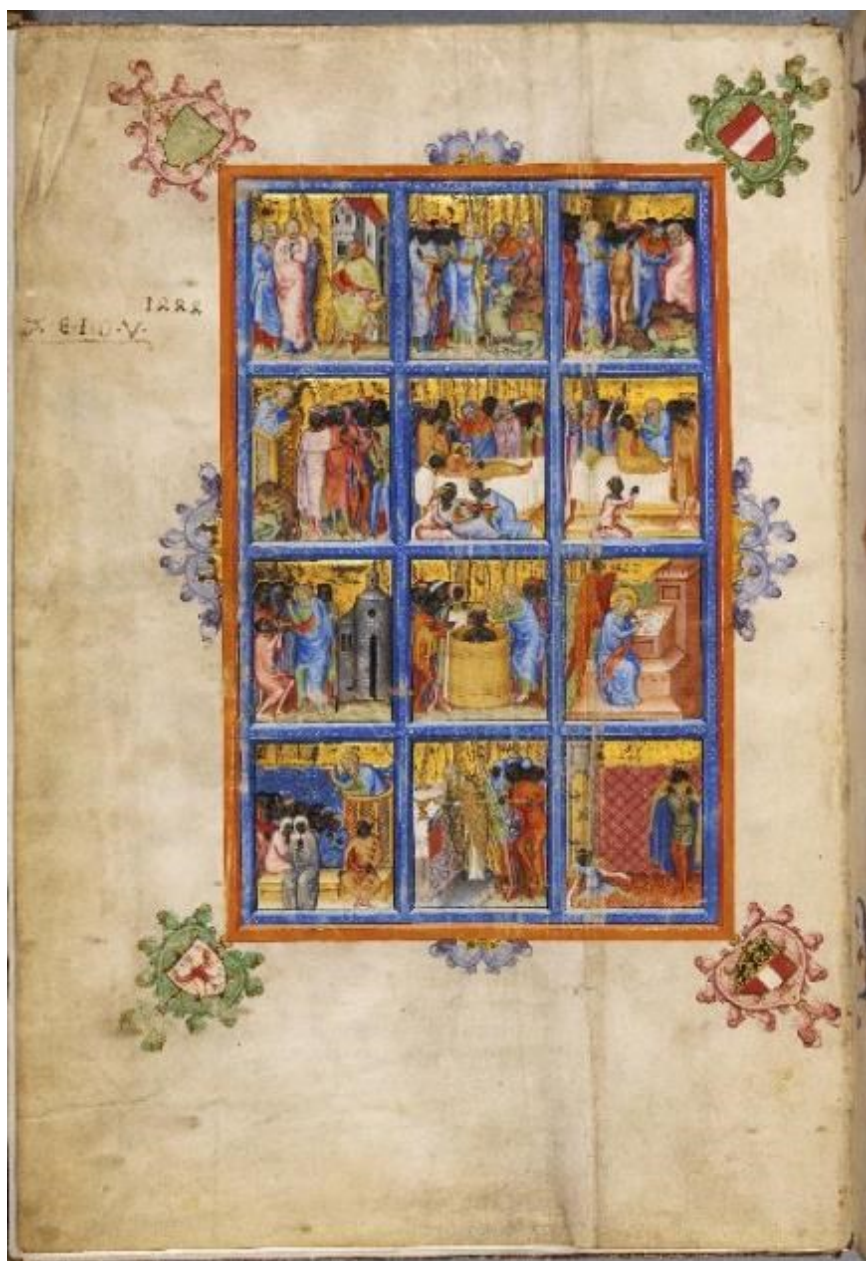 1444
A·E·I·O·V·